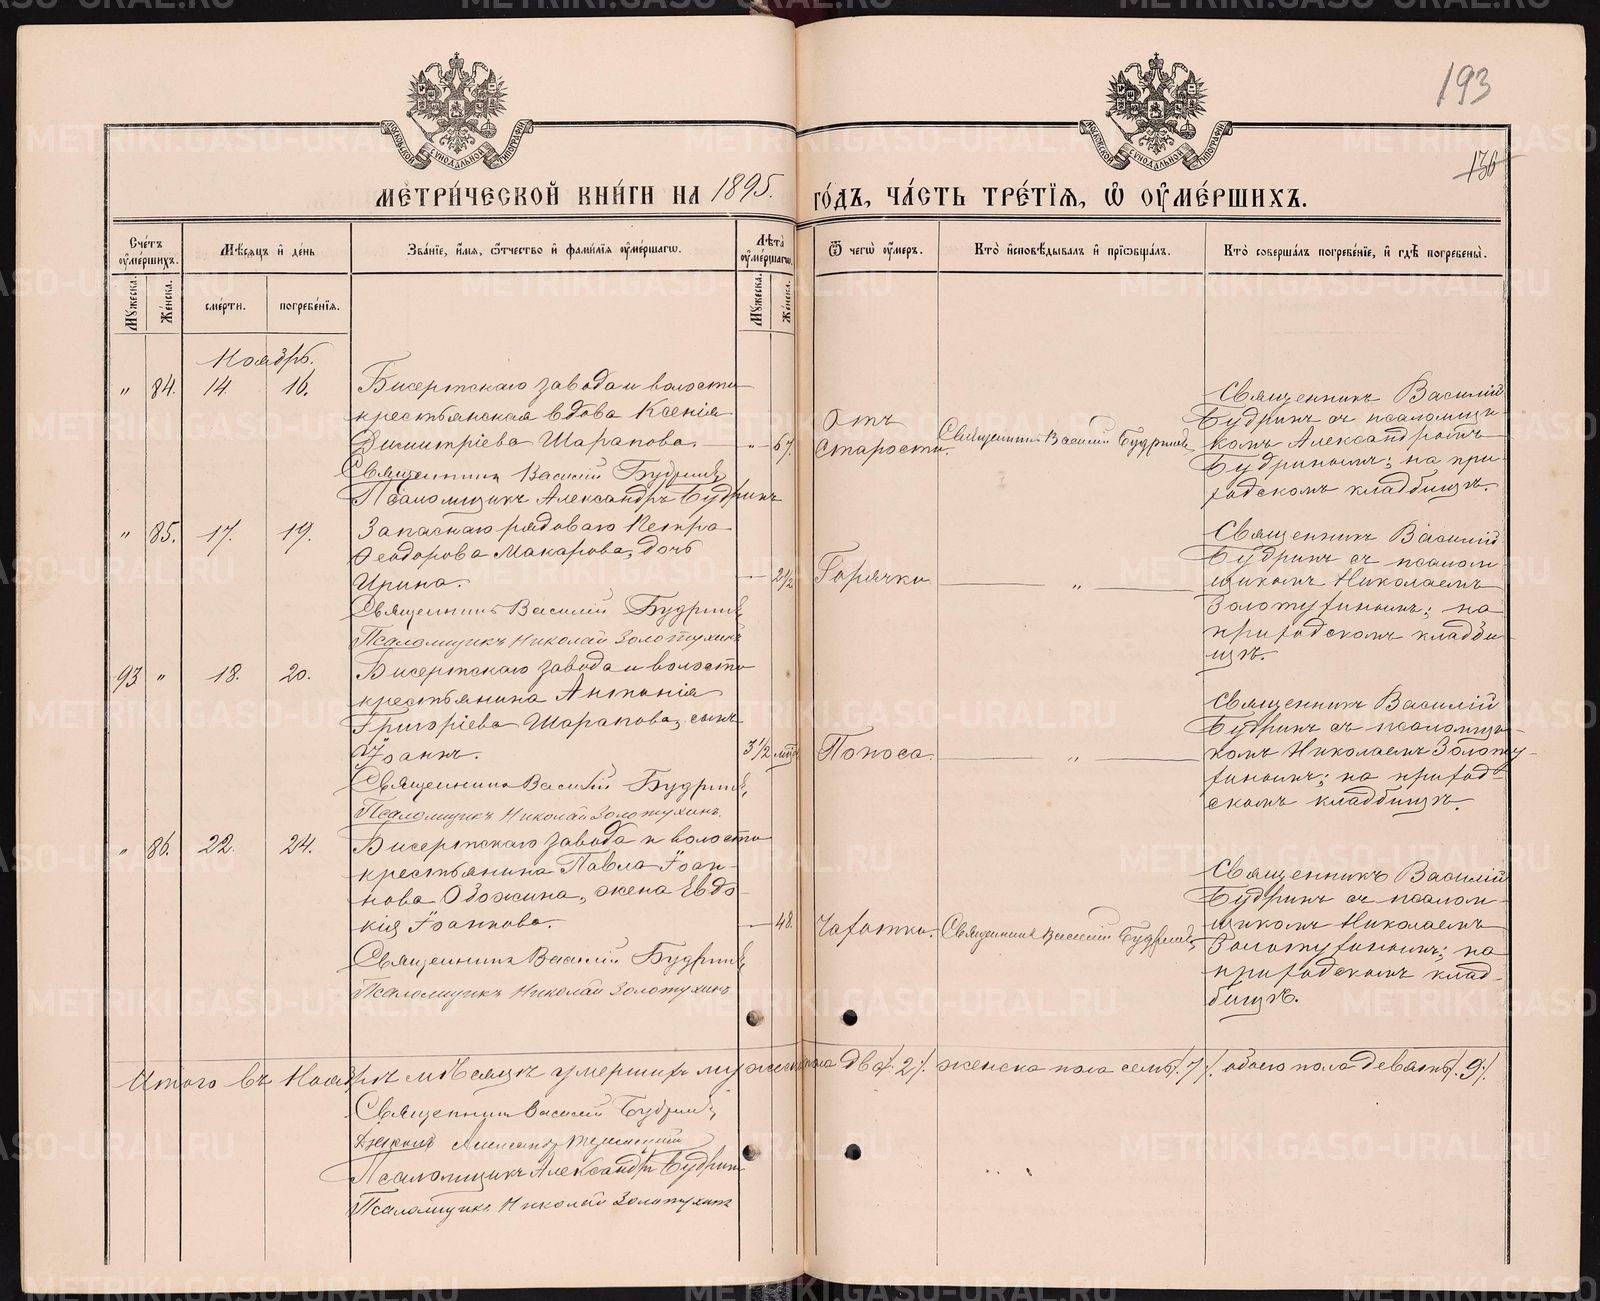 193
136
МЕТРИ́ЧЕСКОЙ КНИ́ГИ НА 1895. ГО́ДЪ, ЧА́СТЬ ТРЕ́ТІЯ, Ѽ ОУ҆МЕ́РШИХЪ.
МОСКОВСКОЙ СѴНОДАЛЬНОЙ ТИПОГРАФІИ
МОСКОВСКОЙ СѴНОДАЛЬНОЙ ТИПОГРАФІИ
Сче́тъ оу҆ме́ршихъ.
Мѣ́сяцъ и҆ де́нь
Зва́ніе, и҆́мя, ѻ҆́тчество и҆ фами́лія оу҆ме́ршагѡ.
Лѣ́та оу҆ме́ршагѡ.
Ѿ чегѡ̀ оу҆́меръ.
Кто̀ и҆сповѣ́дывалъ и҆ прїѡбща́лъ.
Кто̀ соверша́лъ погребе́ніе, и҆ гдѣ̀ погребены̀.
Му́жеска.
Же́нска.
сме́рти.
погребе́нія.
Му́жеска.
Же́нска.
Ноябрь.
„ 84. 14. 16.
Бисертскаго завода и волости
крестьянская вдова Ксенія
Димитріева Шарапова. „ 67.
Священникъ Василій Будринъ
Псаломщикъ Александръ Будринъ
Отъ
старости.
Священникъ Василій Будринъ
Священникъ Василій
Будринъ съ псаломщи-
комъ Александромъ
Будринымъ; на при-
ходскомъ кладбищѣ.
„ 85. 17. 19.
Запаснаго рядоваго Петра
Ѳеодорова Макарова, дочь
Ирина. 2½
Священникъ Василій Будринъ
Псаломщикъ Николай Золотухинъ
Горячки „
Священникъ Василій
Будринъ съ псалом-
щикомъ Николаемъ
Золотухинымъ; на
приходскомъ кладби-
щѣ.
93 „ 18. 20.
Бисертскаго завода и волости
крестьянина Антонія
Григоріева Шарапова, сынъ
Іоаннъ. 3½
Священникъ Василій Будринъ
Псаломщикъ Николай Золотухинъ.
Поноса. „
Священникъ Василій
Будринъ съ псаломщи-
комъ Николаемъ Золоту-
хинымъ; на приход-
скомъ кладбищѣ.
„ 86. 22. 24.
Бисертскаго завода и волости
крестьянина Павла Іоан-
нова Обожина, жена Евдо-
кія Іоаннова. 48.
Священникъ Василій Будринъ
Псаломщикъ Николай Золотухинъ
Чахотки.
Священникъ Василій Будринъ
Священникъ Василій
Будринъ съ псалом-
щикомъ Николаемъ
Золотухинымъ; на
приходскомъ клад-
бищѣ.
Итого въ Ноябрѣ мѣсяцѣ умершихъ мужеска пола два /.2./ женска пола семь /.7./ обоего пола девять /.9./
Священникъ Василій Будринъ
Псаломщикъ Александръ Будринъ
Псаломщикъ Николай Золотухинъ
METRIKI.GASO-URAL.RU